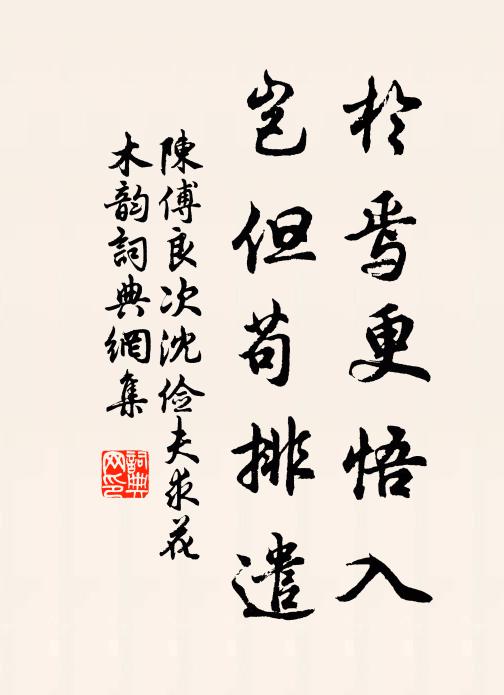 於焉更悟入
豈但苟排遣
陳傅良次沈儉夫求花
木韵詞典網集
詞典网印